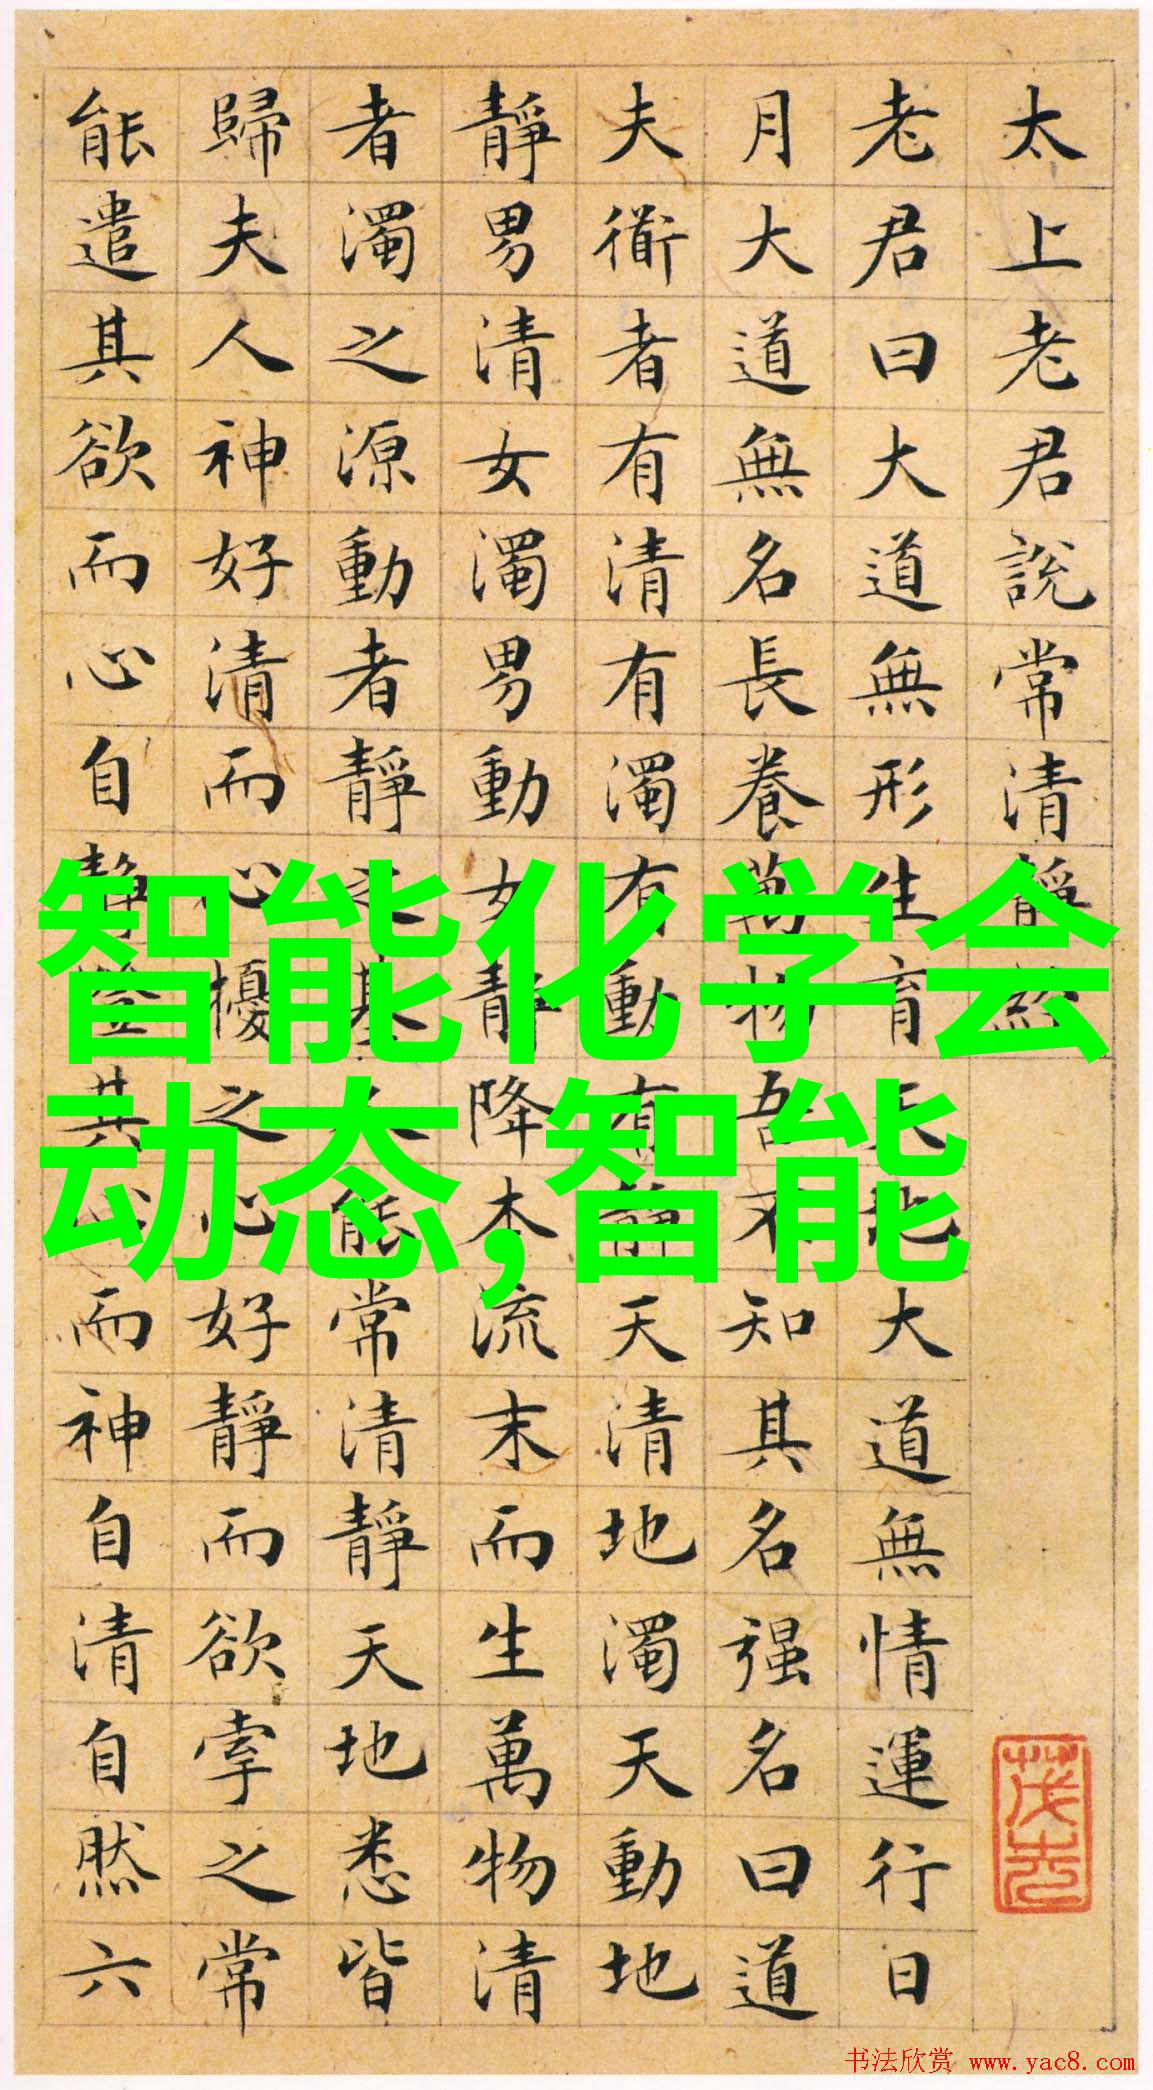 太上老君說常清靜經
老君曰大道無形生育天地大道無情運行日
月大道無名長養萬物吾不知其名强名曰道
夫衜者有清有濁有動有靜天清地濁天動地
靜男清女濁男動女靜降本流末而生萬物清
者濁之源動者靜之基人能常清靜天地悉皆
歸夫人神好清而心擾之心好靜而欲牽之常
能遣其欲而心自靜澄其心而神自清自然六
智能化学会
动态,智能
书法欣赏 www.yac8.com